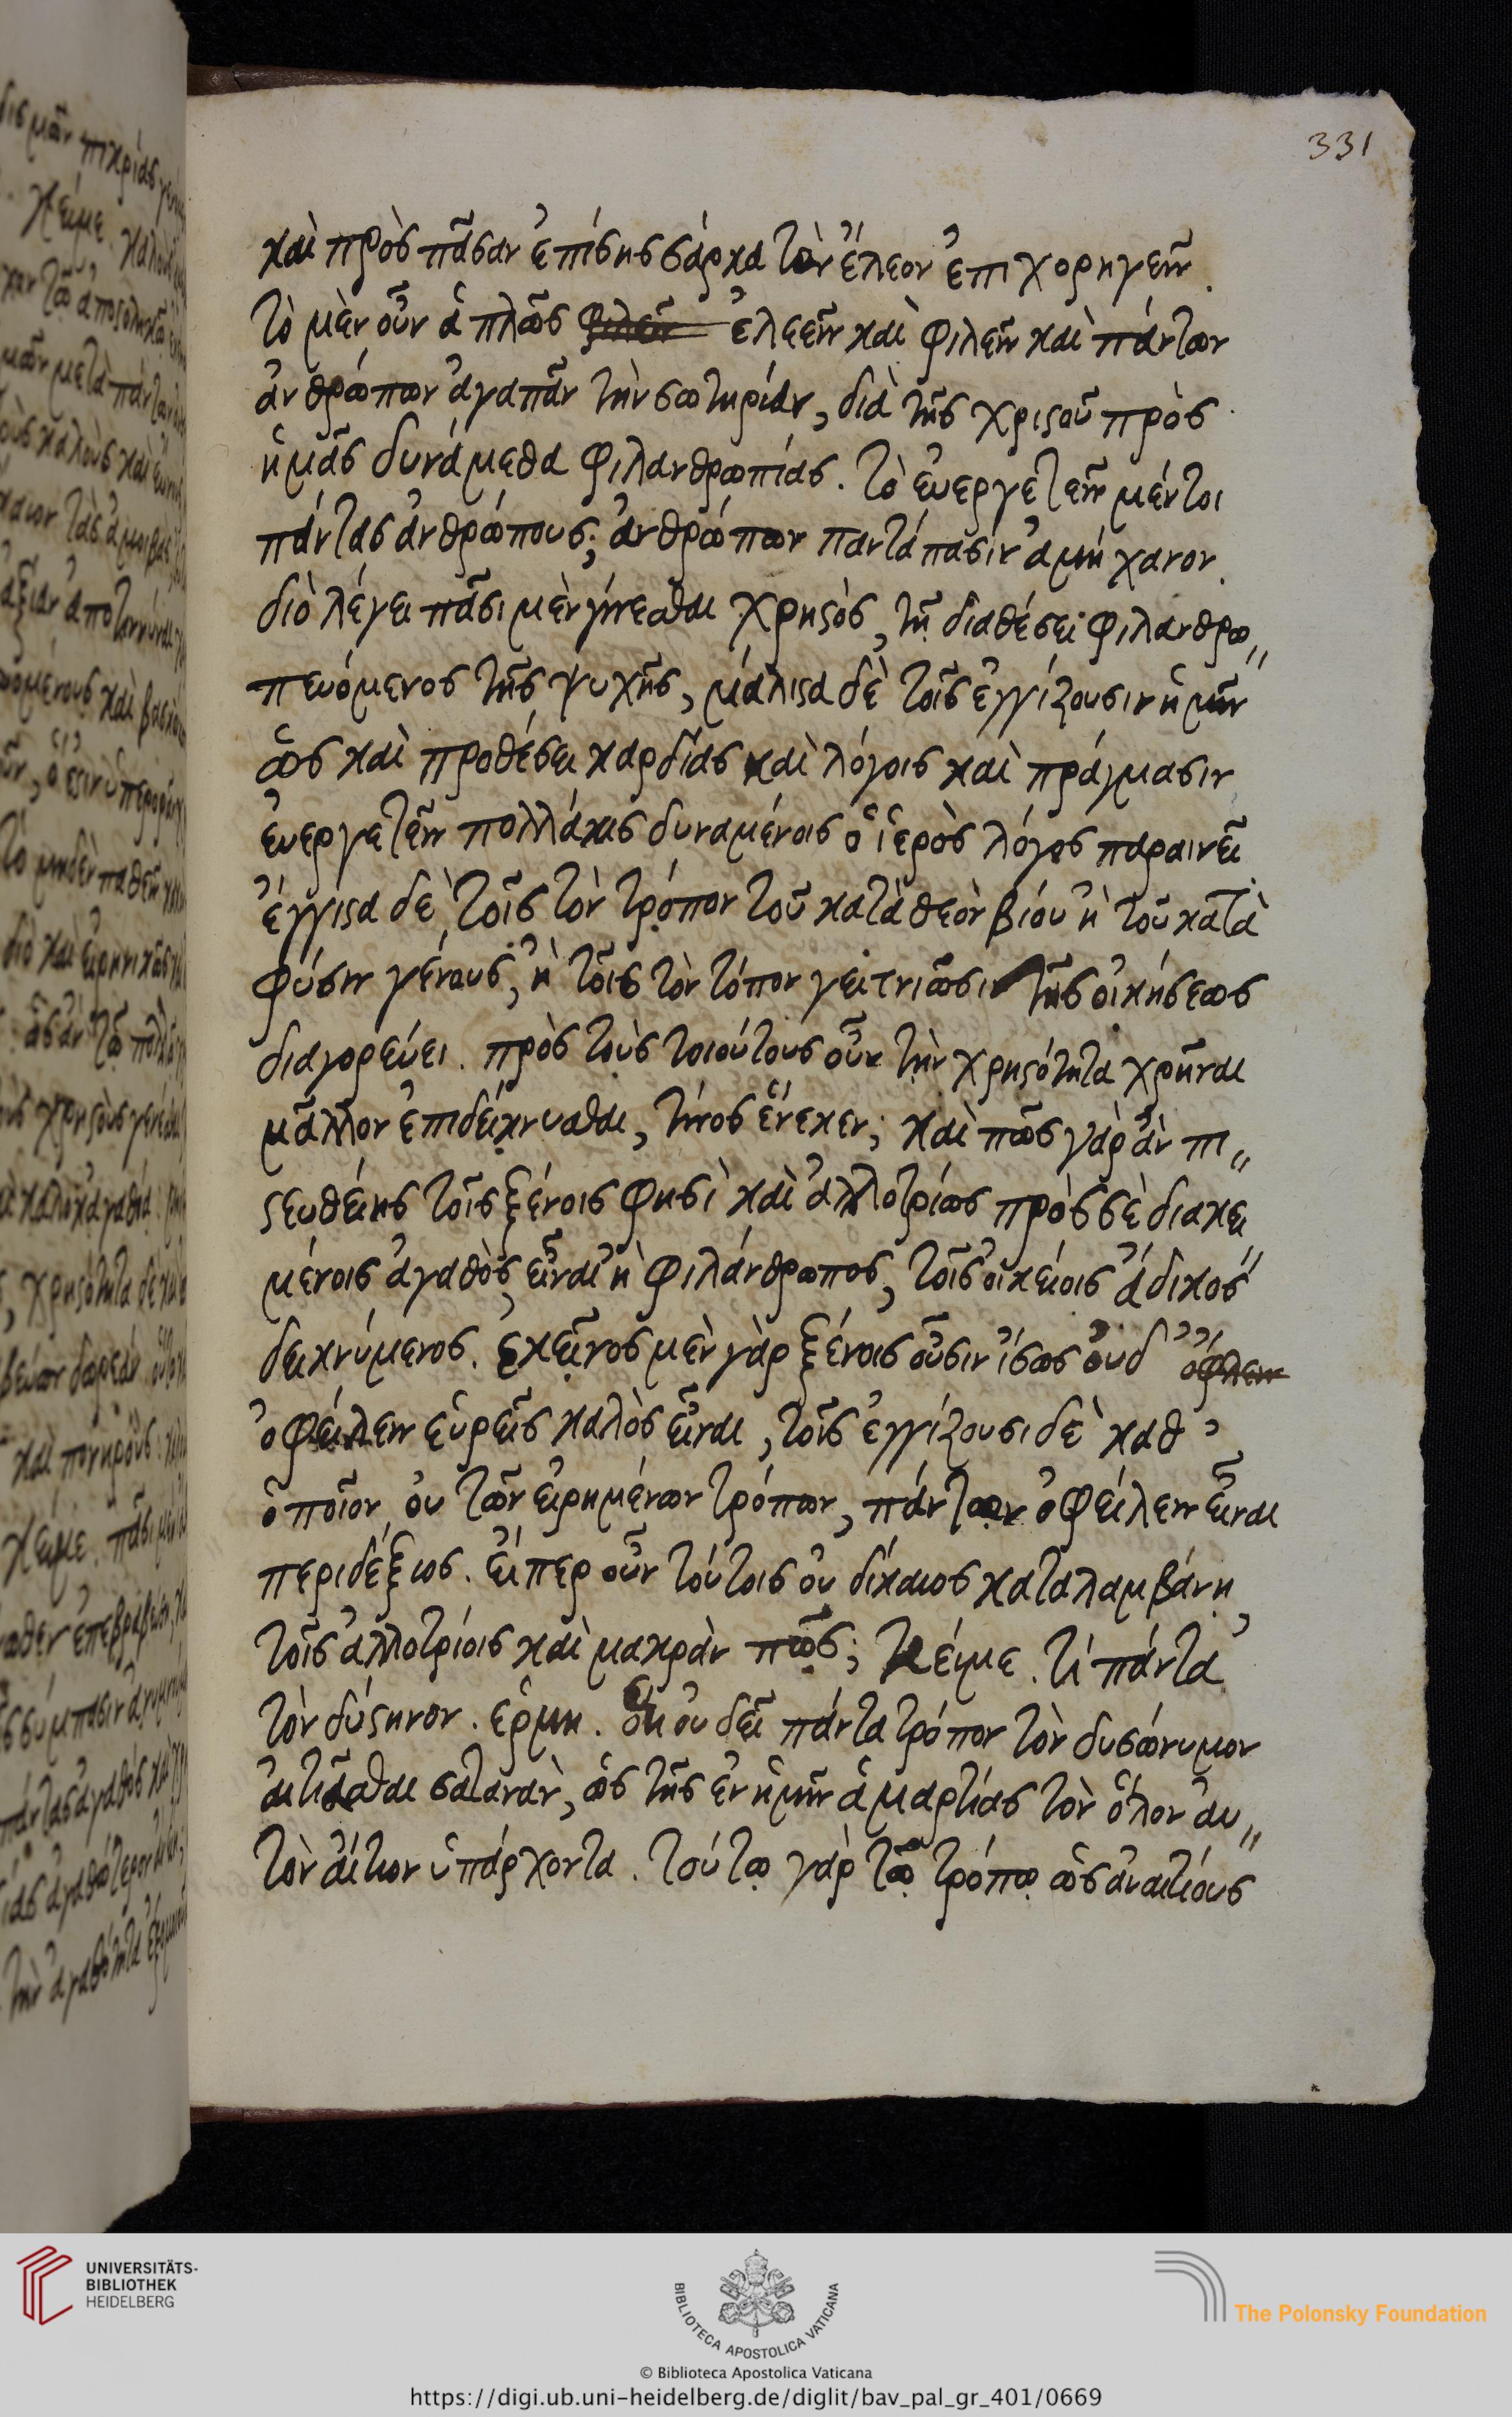 331
καὶ πρὸς πᾶσαν ἐπίσης σάρκα τὸν ἔλεον ἐπιχορηγεῖν.
τὸ μὲν οὖν ἁπλῶς φιλεῖν ἐλεεῖν καὶ φιλεῖν καὶ πάντων
ἀνθρώπων ἀγαπᾶν τὴν σωτηρίαν, διὰ τῆς χριϛοῦ πρὸς
ἡμᾶς δυνάμεθα φιλανθρωπίας. τὸ εὐεργετεῖν μέντοι
πάντας ἀνθρώπους, ἀνθρώπων παντάπασιν ἀμήχανον.
διὸ λέγει πᾶσι μὲν γίνεσθαι χρηϛὸς, τῇ διαθέσει φιλανθρω„
πευόμενος τῆς ψυχῆς, μάλιϛα δὲ τοῖς ἐγγίζουσιν ἡμῖν
ὡς καὶ προθέσει καρδίας καὶ λόγοις καὶ πράγμασιν
εὐεργετεῖν πολλάκις δυναμένοις ὁ ἱερὸς λόγος παραινεῖ.
ἔγγιϛα δὲ, τοῖς τὸν τρόπον τοῦ κατὰ θεὸν βίου ἢ τοῦ κατὰ
φύσιν γένους, ἢ τοῖς τὸν τόπον γειτνιῶσιν τῆς οἰκήσεως
διαγορεύει. πρὸς τοὺς τοιούτους οὖν τὴν χρηϛότητα χρῆναι
μᾶλλον ἐπιδείκνυσθαι, τίνος ἕνεκεν; καὶ πῶς γὰρ ἂν πι„
ϛευθείης τοῖς ξένοις φησὶ καὶ ἀλλοτρίως πρὸς σὲ διακει„
μένοις ἀγαθὸς εἶναι ἢ φιλάνθρωπος, τοῖς οἰκείοις ἄδικος
δεικνύμενος. ἐκεῖνος μὲν γὰρ ξένοις οὖσιν ἴσως οὐδ᾽ ὀφλειν
ὀφείλειν εὑρεῖς καλὸς εἶναι, τοῖς ἐγγίζουσι δὲ καθ᾽
ὁποῖον οὖν τῶν εἰρημένων τρόπων, πάντων ὀφείλειν εἶναι
περιδέξιος. εἴπερ οὖν τούτοις οὐ δίκαιος καταλαμβάνῃ,
τοῖς ἀλλοτρίοις καὶ μακρὰν πῶς; κείμε. τί πάντα
τὸν δύϛηνον. ἑρμη. ὅτι οὐ δεῖ πάντα τρόπον τὸν δυσώνυμον
αἰτιᾶσθαι σατανᾶν, ὡς τῆς ἐν ἡμῖν ἁμαρτίας τὸν ὅλον αὐ„
τὸν αἴτιον ὑπάρχοντα. τούτῳ γὰρ τῷ τρόπῳ ὡς ἀναιτίους
UNIVERSITÄTS-
BIBLIOTHEK
HEIDELBERG
BIBLIOTECA APOSTOLICA VATICANA
The Polonsky Foundation
© Biblioteca Apostolica Vaticana
https://digi.ub.uni-heidelberg.de/diglit/bav_pal_gr_401/0669